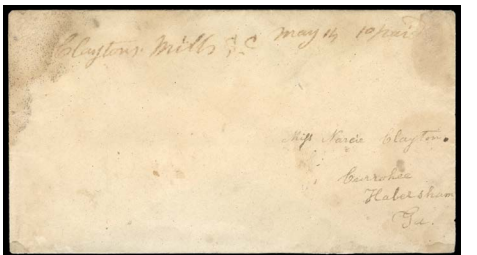 Claytons Mills S.C May 14 10 paid
Miss Narcie Clayton.
Currohee
Habersham
Ga.